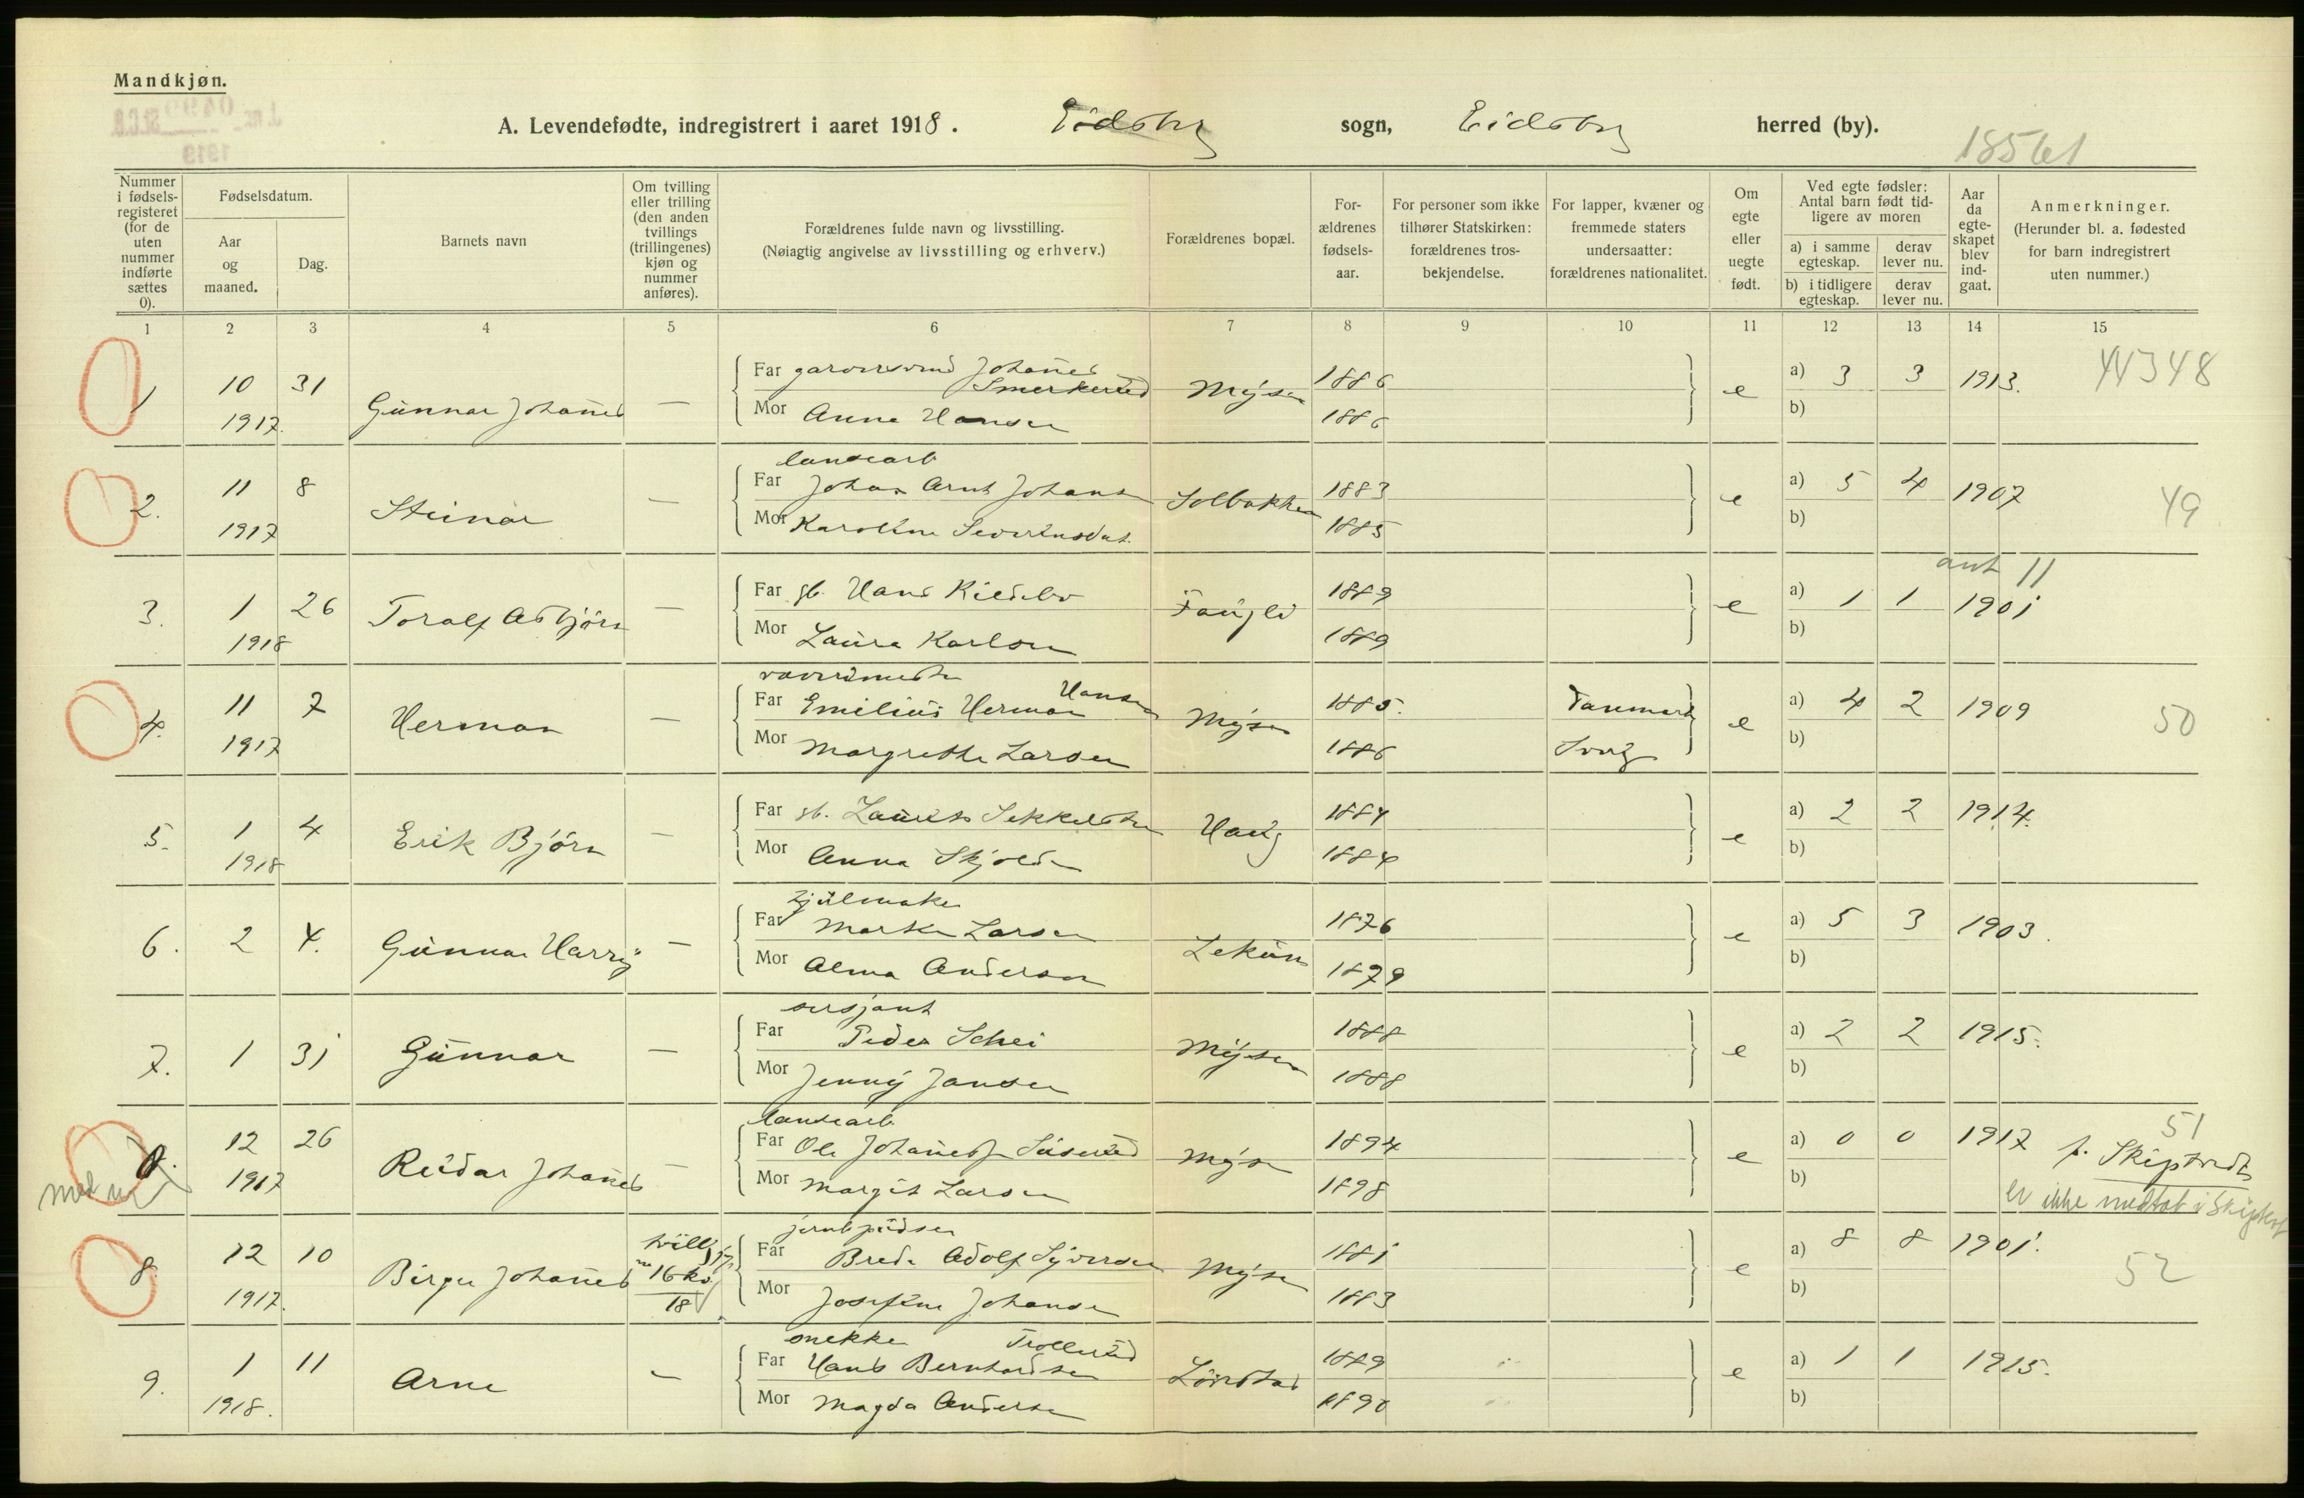 Mandkjøn.
A. Levendefødte, indregistrert i aaret 1918. Eidsberg sogn, Eidsberg herred (by).
18561
Nummer i fødselsregisteret (for de uten nummer indførte sættes 0).
Fødselsdatum.
Aar og maaned.
Dag.
Barnets navn
Om tvilling eller trilling (den anden tvillings (trillingenes) kjøn og nummer anføres).
Forældrenes fulde navn og livsstilling.
(Nøiagtig angivelse av livsstilling og erhverv.)
Forældrenes bopæl.
Forældrenes fødselsaar.
For personer som ikke tilhører Statskirken: forældrenes trosbekjendelse.
For lapper, kvæner og fremmede staters undersaatter: forældrenes nationalitet.
Om egte eller uegte født.
Ved egte fødsler: Antal barn født tidligere av moren
a) i samme egteskap.
derav lever nu.
b) i tidligere egteskap.
derav lever nu.
Aar da egteskapet blev indgaat.
Anmerkninger.
(Herunder bl. a. fødested for barn indregistrert uten nummer.)
1 2 3 4 5 6 7 8 9 10 11 12 13 14 15
1 10 31 Far garversvend Johannes Smerkerud 1886 a) 3 3 1913. 44348
1917. Gunnar Johannes — Mysen e
Mor Anna Hansen 1886 b)
landearb
2. 11 8 Far Johan Arnt Johansen 1883 a) 5 4 1907 49
1917 Steinar — Solbakken e
Mor Karoline Severinsdat. 1885 b)
ant 11
3. 1 26 Far gb. Hans Kildebo 1889 a) 1 1 1901
1918 Toralf Asbjørn — e
Mor Laura Karlsen 1889 b)
4. 11 7 Far Emilius Herman Hansen 1885. Danmark a) 4 2 1909 50
1917 Herman — Mysen e
Mor Margrethe Larsen 1886 Sverig b)
5. 1 4 Far gb. Laurits 1884 a) 2 2 1914.
1918 Erik Bjørn — Haug e
Mor Anna 1884 b)
hjulmaker
6. 2 4. Far Larsen 1876 a) 5 3 1903.
Gunnar Harry — Lekum e
Mor Alma Andersen 1879 b)
sersjant
7. 1 31 Far Peder Schei 1888 a) 2 2 1915.
Gunnar — Mysen e
Mor Jenny Jansen 1888 b)
landearb.
0. 12 26 Far Ole Johannes 1894 a) 0 0 1917 51
1917 Reidar Johannes — Mysen e f. Skiptvedt
Mor Margit Larsen 1898 b)
med
er ikke medtat i Skiptvet
jernbpudser
8 12 10 tvill Far Adolf Syversen 1881 a) 8 8 1901.
1917. Birger Johannes 16 kv 18 Mysen e 52
Mor Josefine Johansen 1883 b)
snekker Trollerud
9. 1 11 Far Hans Bernhardsen 1889 a) 1 1 1915.
1918. Arne — e
Mor Magda Andersen 1890 b)